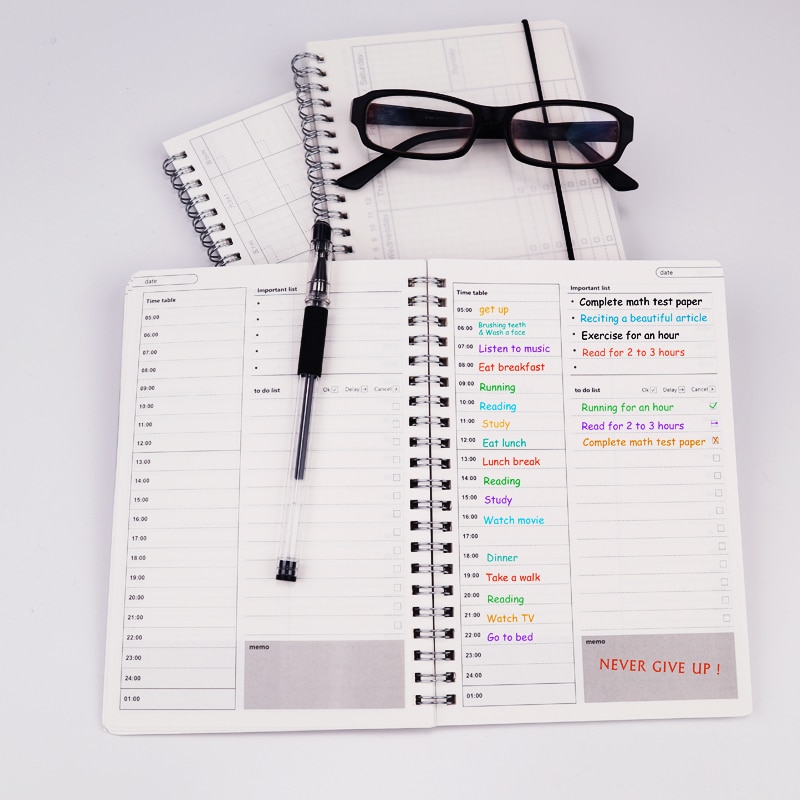 Saturday
date
Time table
05:00
06:00
07:00
08:00
09:00
10:00
11:00
12:00
13:00
14:00
15:00
16:00
17:00
18:00
19:00
20:00
21:00
22:00
23:00
24:00
01:00
Important list
to do list Ok Delay Cancel
memo
date
Time table
05:00 get up
06:00 Brushing teeth
& Wash a face
07:00 Listen to music
08:00 Eat breakfast
09:00 Running
10:00 Reading
11:00 Study
12:00 Eat lunch
13:00 Lunch break
14:00 Reading
15:00 Study
16:00 Watch movie
17:00
18:00 Dinner
19:00 Take a walk
20:00 Reading
21:00 Watch TV
22:00 Go to bed
23:00
24:00
01:00
Important list
• Complete math test paper
• Reciting a beautiful article
• Exercise for an hour
• Read for 2 to 3 hours
•
to do list Ok Delay Cancel
Running for an hour
Read for 2 to 3 hours
Complete math test paper
memo
NEVER GIVE UP !